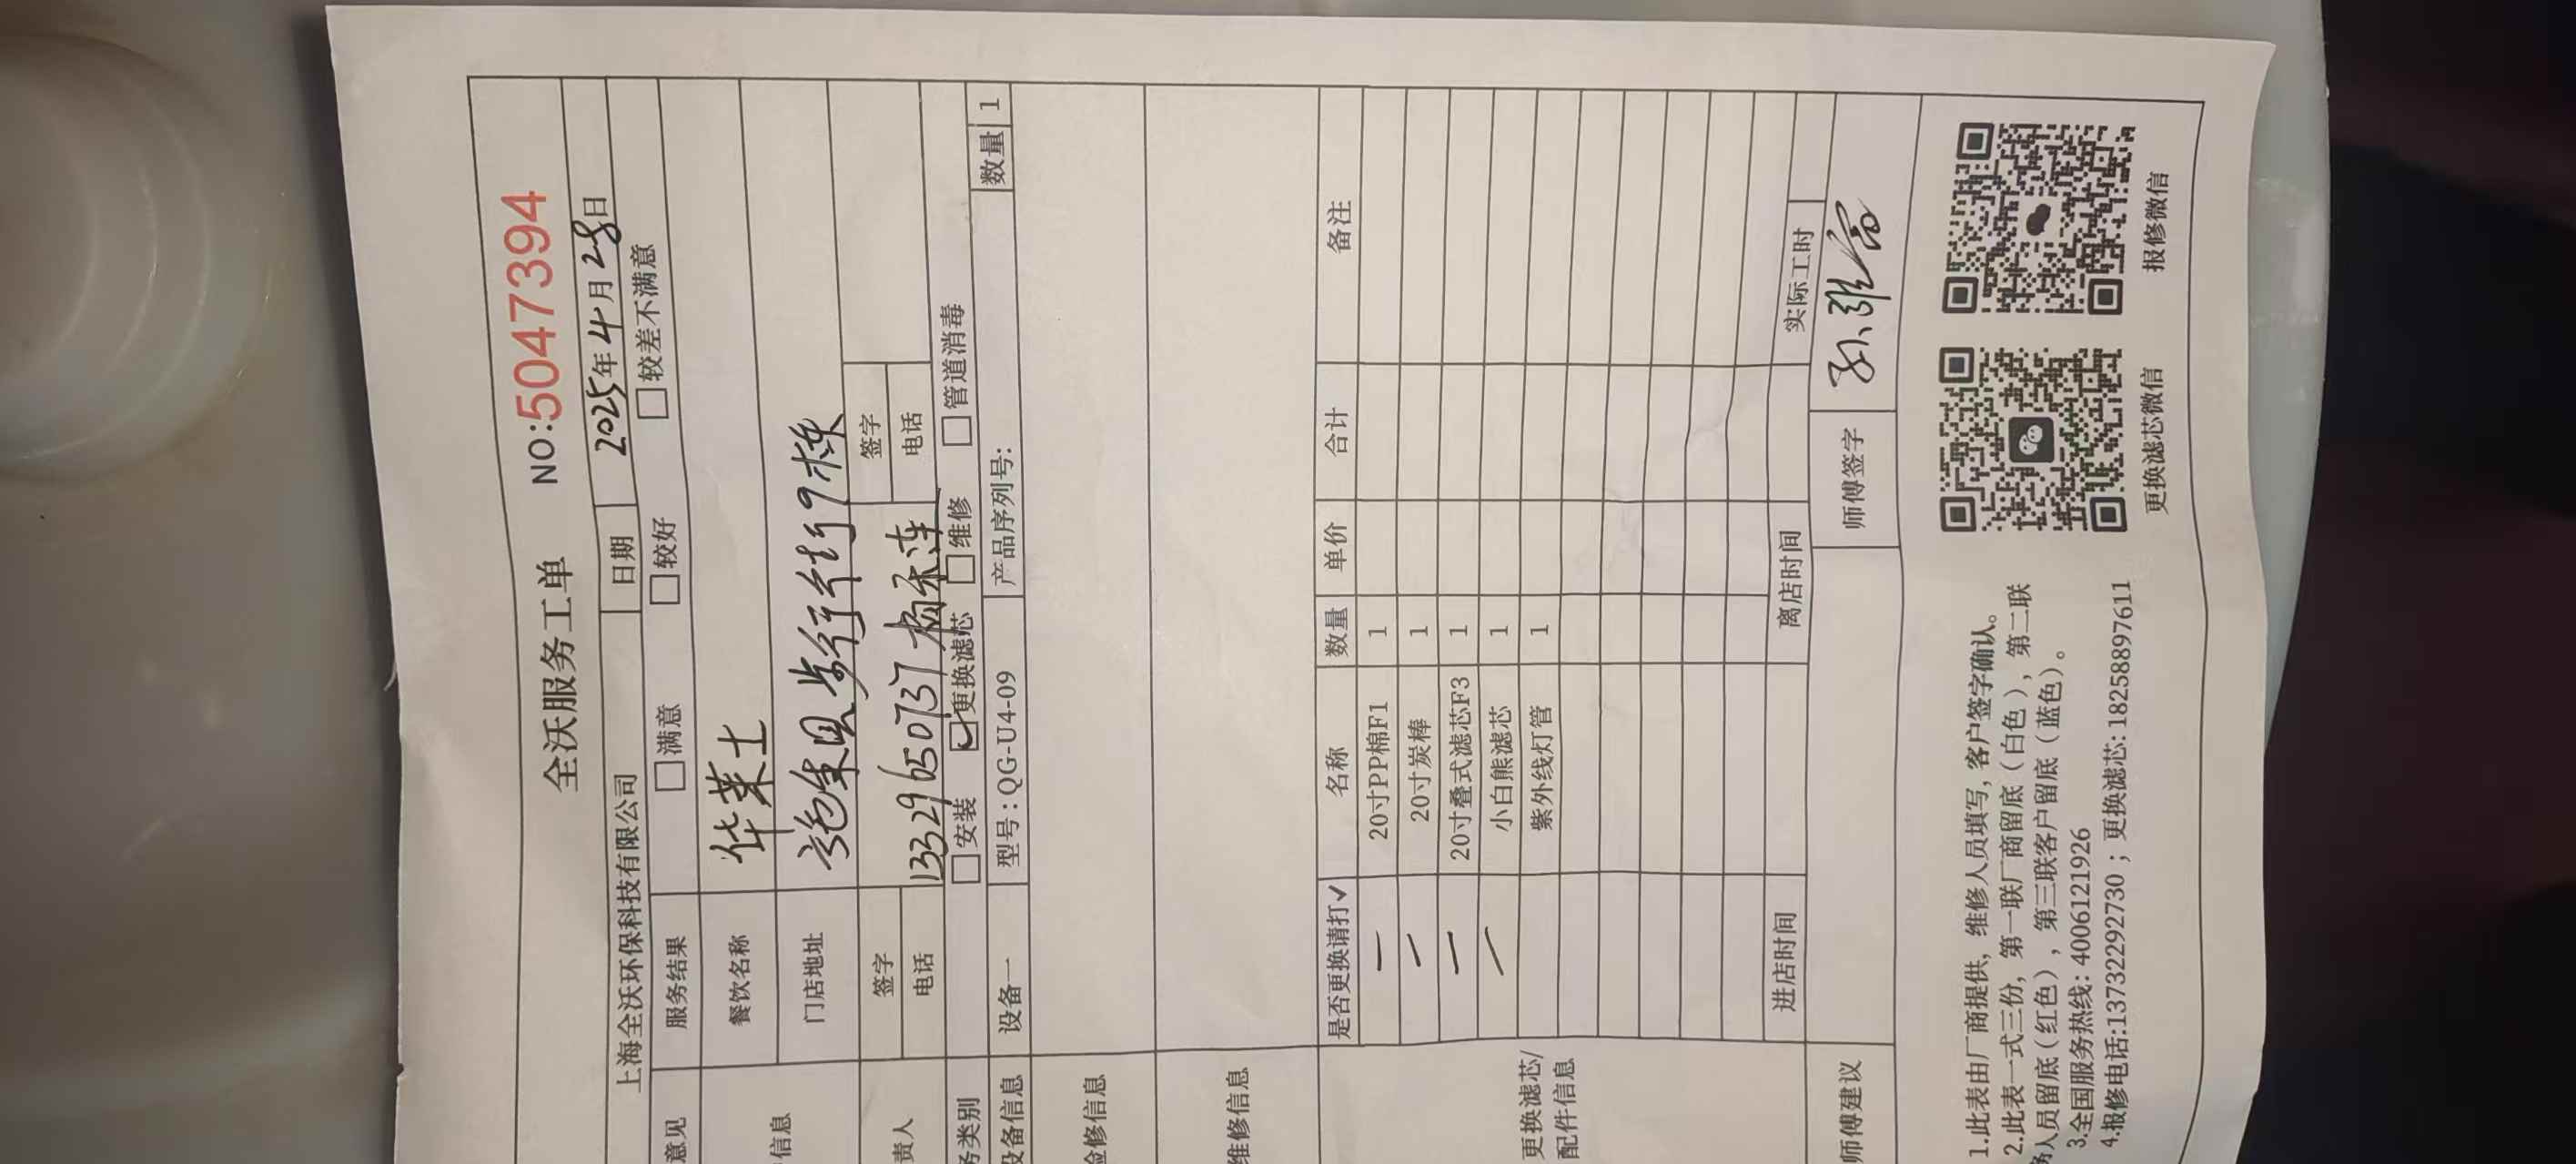 全沃服务工单 NO:5047394
上海全沃环保科技有限公司 日期 2025年4月28日
意见 服务结果 满意 较好 较差不满意
信息 餐饮名称 华莱士
门店地址 步行街9栋
责人 签字 签字
电话 13329650737 电话
务类别 安装 更换滤芯 维修 管道消毒
设备信息 设备一 型号:QG-U4-09 产品序列号: 数量 1
检修信息
维修信息
是否更换请打✓ 名称 数量 单价 合计 备注
20寸PP棉F1 1
20寸炭棒 1
20寸叠式滤芯F3 1
小白熊滤芯 1
紫外线灯管 1
更换滤芯/
配件信息
进店时间 离店时间 实际工时
师傅建议 师傅签字
1.此表由厂商提供，维修人员填写，客户签字确认。
2.此表一式三份，第一联厂商留底（白色），第二联
务人员留底（红色），第三联客户留底（蓝色）。
3.全国服务热线: 4006121926
4.报修电话:13732292730 ；更换滤芯: 18258897611
更换滤芯微信 报修微信